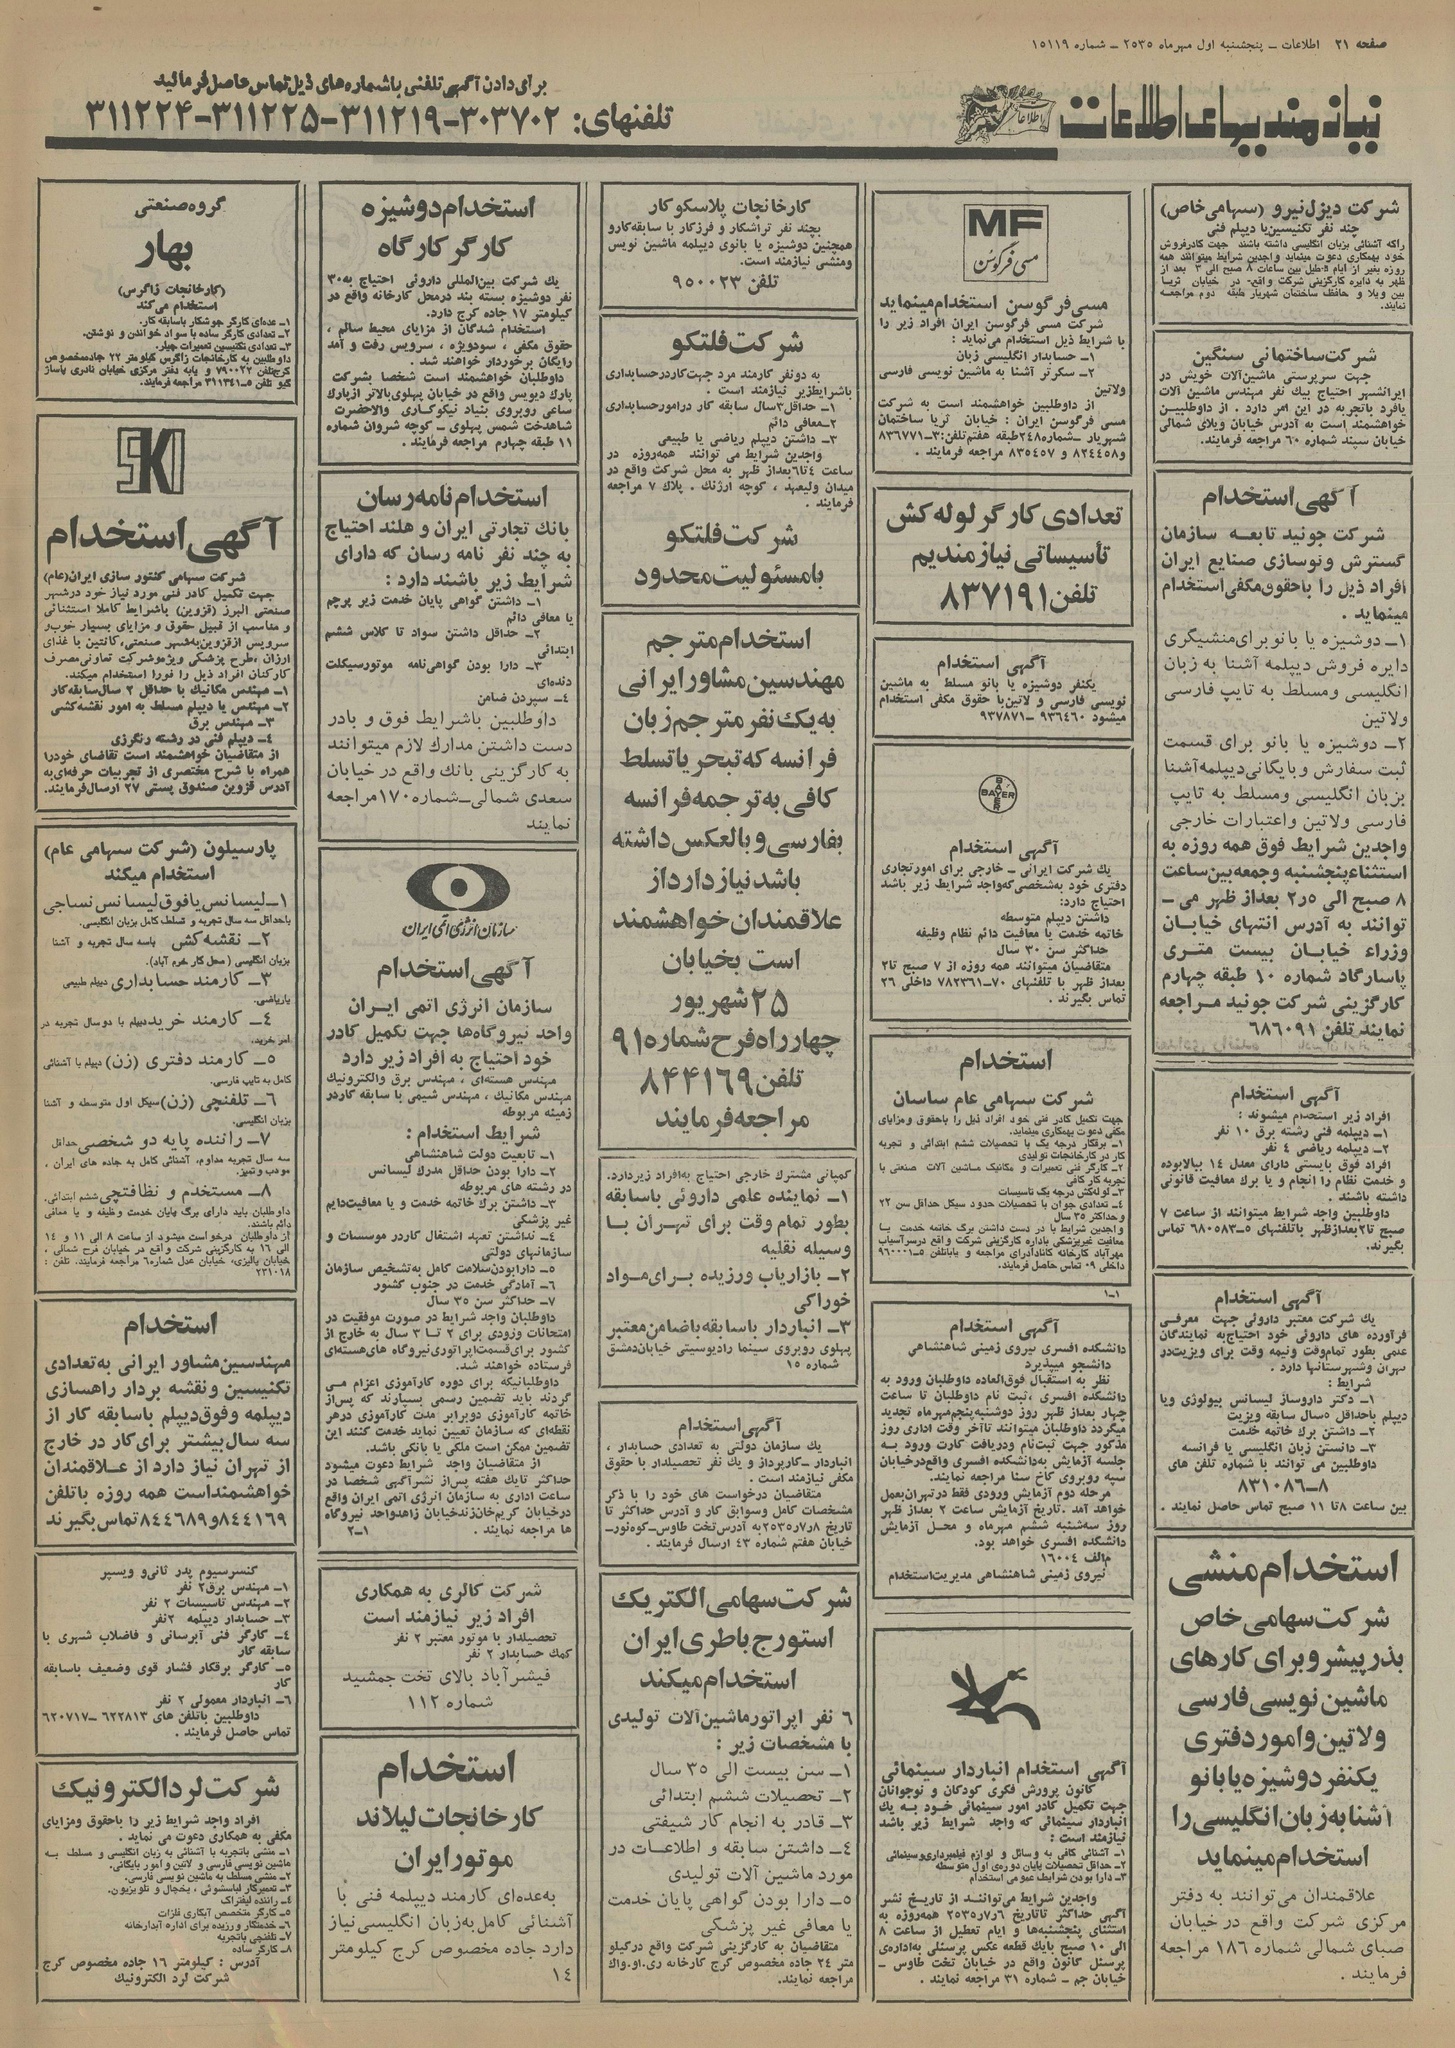 صفحه ۲۱ اطلاعات – پنجشنبه اول مهرماه ۲۵۳۵ – شماره ۱۵۱۱۹
نیازمندیهای اطلاعات
برای دادن آگهی تلفنی با شماره‌های ذیل تماس حاصل فرمائید
تلفنهای: ۳۰۳۷۰۲-۳۱۱۲۱۹-۳۱۱۲۲۵-۳۱۱۲۲۴
شرکت دیزل نیرو (سهامی خاص)
چند نفر تکنیسین یا دیپلم فنی
راکه آشنائی بزبان انگلیسی داشته باشند جهت کادرفروش
خود بهمکاری دعوت مینماید واجدین شرایط میتوانند همه
روزه بغیر از ایام تعطیل بین ساعات ۸ صبح الی ۳ بعد از
ظهر به دایره کارگزینی شرکت واقع در خیابان ثریا
بین ویلا و حافظ ساختمان شهریار طبقه دوم مراجعه
نمایند.
شرکت ساختمانی سنگین
جهت سرپرستی ماشین‌آلات خویش در
ایرانشهر احتیاج بیک نفر مهندس ماشین آلات
یافرد باتجربه در این امر دارد . از داوطلبین
خواهشمند است به آدرس خیابان ویلای شمالی
خیابان سپند شماره ۶۰ مراجعه فرمایند.
آگهی استخدام
شرکت جونید تابعه سازمان
گسترش ونوسازی صنایع ایران
افراد ذیل را باحقوق مکفی استخدام
مینماید .
۱– دوشیزه یا بانو برای منشیگری
دایره فروش دیپلمه آشنا به زبان
انگلیسی ومسلط به تایپ فارسی
ولاتین
۲– دوشیزه یا بانو برای قسمت
ثبت سفارش وبایگانی دیپلمه آشنا
بزبان انگلیسی ومسلط به تایپ
فارسی ولاتین واعتبارات خارجی
واجدین شرایط فوق همه روزه به
استثناء پنجشنبه وجمعه بین ساعت
۸ صبح الی ۲٫۵ بعداز ظهر می –
توانند به آدرس انتهای خیابان
وزراء خیابان بیست متری
پاسارگاد شماره ۱۰ طبقه چهارم
کارگزینی شرکت جونید مراجعه
نمایند تلفن ۶۸۶۰۹۱
آگهی استخدام
افراد زیر استخدام میشوند :
۱– دیپلمه فنی رشته برق ۱۰ نفر
۲– دیپلمه ریاضی ۴ نفر
افراد فوق بایستی دارای معدل ۱۴ ببالابوده
و خدمت نظام را انجام و یا برک معافیت قانونی
داشته باشند .
داوطلبین واجد شرایط میتوانند از ساعت ۷
صبح تا۲ بعدازظهر باتلفنهای ۵–۶۸۰۵۸۳ تماس
بگیرند.
آگهی استخدام
یک شرکت معتبر داروئی جهت معرفی
فرآورده های داروئی خود احتیاج به نمایندگان
علمی بطور تمام‌وقت ونیمه وقت برای ویزیت در
تهران وشهرستانها دارد .
شرایط :
۱– دکتر داروساز لیسانس بیولوژی ویا
دیپلم باحداقل ۵سال سابقه ویزیت
۲– داشتن برک خاتمه خدمت
۳– دانستن زبان انگلیسی یا فرانسه
داوطلبین می توانند با شماره تلفن های
۸–۸۳۱۰۸۶
بین ساعت ۸ تا ۱۱ صبح تماس حاصل نمایند .
استخدام منشی
شرکت سهامی خاص
بذرپیشرو برای کارهای
ماشین نویسی فارسی
ولاتین وامور دفتری
یکنفردوشیزه یا بانو
آشنا به زبان انگلیسی را
استخدام مینماید
علاقمندان می‌توانند به دفتر
مرکزی شرکت واقع در خیابان
صبای شمالی شماره ۱۸۶ مراجعه
فرمایند .
MF
مسی فرگوسن
مسی فرگوسن استخدام مینماید
شرکت مسی فرگوسن ایران افراد زیر را
با شرایط ذیل استخدام می‌نماید :
۱– حسابدار انگلیسی زبان
۲– سکرتر آشنا به ماشین نویسی فارسی
ولاتین
از داوطلبین خواهشمند است به شرکت
مسی فرگوسن ایران : خیابان ثریا ساختمان
شهریار –شماره۲۴۸طبقه هفتم تلفن:۳–۸۳۶۷۷۱
و۸۲۴۴۵۸ و ۸۳۵۴۵۷ مراجعه فرمایند .
تعدادی کارگر لوله کش
تأسیساتی نیازمندیم
تلفن ۸۳۷۱۹۱
آگهی استخدام
یکنفر دوشیزه یا بانو مسلط به ماشین
نویسی فارسی و لاتین با حقوق مکفی استخدام
میشود ۹۳۶۴۶۰ –۹۳۷۸۷۱
BAYER
آگهی استخدام
یک شرکت ایرانی – خارجی برای امورتجاری
دفتری خود به‌شخصی که‌واجد شرایط زیر باشد
احتیاج دارد:
داشتن دیپلم متوسطه
خاتمه خدمت یا معافیت دائم نظام وظیفه
حداکثر سن ۳۰ سال
متقاضیان میتوانند همه روزه از ۷ صبح تا۲
بعداز ظهر با تلفنهای ۷۰–۷۸۲۳۶۱ داخلی ۲۶
تماس بگیرند .
استخدام
شرکت سهامی عام ساسان
جهت تکمیل کادر فنی خود افراد ذیل را باحقوق ومزایای
مکفی دعوت بهمکاری مینماید.
۱– برقکار درجه یک با تحصیلات ششم ابتدائی و تجربه
کار در کارخانجات تولیدی
۲– کارگر فنی تعمیرات و مکانیک ماشین آلات صنعتی با
تجربه کار کافی
۳– لوله‌کش درجه یک تاسیسات
۴– تعدادی جوان با تحصیلات حدود سیکل حداقل سن ۲۲
و حداکثر ۳۵ سال
واجدین شرایط با در دست داشتن برگ خاتمه خدمت یا
معافیت غیرپزشکی باداره کارگزینی شرکت واقع درسرآسیاب
مهرآباد کارخانه کانادادرای مراجعه و یاباتلفن ۵–۹۶۰۰۰۱
داخلی ۰۹ تماس حاصل فرمایند.
۱–۱
آگهی استخدام
دانشکده افسری نیروی زمینی شاهنشاهی
دانشجو میپذیرد
نظر به استقبال فوق‌العاده داوطلبان ورود به
دانشکده افسری ،ثبت نام داوطلبان تا ساعت
چهار بعداز ظهر روز دوشنبه‌پنجم‌مهرماه تجدید
میگردد داوطلبان میتوانند تاآخر وقت اداری روز
مذکور جهت ثبت‌نام ودریافت کارت ورود به
جلسه آزمایش به‌دانشکده افسری واقع‌درخیابان
سپه روبروی کاخ سنا مراجعه نمایند.
مرحله دوم آزمایش ورودی فقط درتهران‌بعمل
خواهد آمد .تاریخ آزمایش ساعت ۲ بعداز ظهر
روز سه‌شنبه ششم مهرماه و محل آزمایش
دانشکده افسری خواهد بود.
م‌الف ۱۶۰۰۴
نیروی زمینی شاهنشاهی مدیریت‌استخدام
آگهی استخدام انباردار سینمائی
کانون پرورش فکری کودکان و نوجوانان
جهت تکمیل کادر امور سینمائی خود به یک
انباردار سینمائی که واجد شرایط زیر باشد
نیازمند است :
۱– آشنائی کافی به وسائل و لوازم فیلمبرداری‌وسینمائی
۲– حداقل تحصیلات پایان دوره‌ی اول متوسطه
۳– دارا بودن شرایط عمومی استخدام
واجدین شرایط می‌توانند از تاریخ نشر
آگهی حداکثر تاتاریخ ۲۵۳۵٫۷٫۶ همه‌روزه به
استثنای پنجشنبه‌ها و ایام تعطیل از ساعت ۸
الی ۱۰ صبح بایک قطعه عکس پرسنلی به‌اداره‌ی
پرسنل کانون واقع در خیابان تخت طاوس –
خیابان جم – شماره ۳۱ مراجعه نمایند .
کارخانجات پلاسکوکار
بچند نفر تراشکار و فرزکار با سابقه‌کارو
همچنین دوشیزه یا بانوی دیپلمه ماشین نویس
ومنشی نیازمند است.
تلفن ۹۵۰۰۲۳
شرکت فلتکو
به دونفر کارمند مرد جهت‌کاردرحسابداری
باشرایط‌زیر نیازمند است :
۱– حداقل۳سال سابقه کار درامورحسابداری
۲–معافی دائم
۳– داشتن دیپلم ریاضی یا طبیعی
واجدین شرایط می توانند همه‌روزه در
ساعت ۴تا۶بعداز ظهر به محل شرکت واقع در
میدان ولیعهد ، کوچه ارژنگ . پلاک ۷ مراجعه
فرمایند .
شرکت فلتکو
بامسئولیت محدود
استخدام مترجم
مهندسین مشاور ایرانی
به یک نفر مترجم زبان
فرانسه که تبحر یا تسلط
کافی به ترجمه فرانسه
بفارسی و بالعکس داشته
باشد نیاز دارد از
علاقمندان خواهشمند
است بخیابان
۲۵ شهریور
چهارراه فرح شماره ۹۱
تلفن ۸۴۴۱۶۹
مراجعه فرمایند
کمپانی مشترک خارجی احتیاج به‌افراد زیردارد.
۱– نماینده علمی داروئی باسابقه
بطور تمام وقت برای تهران با
وسیله نقلیه
۲– بازاریاب ورزیده برای‌مواد
خوراکی
۳– انباردار باسابقه باضامن‌معتبر
پهلوی روبروی سینما رادیوسیتی خیابان‌دمشق
شماره ۱۵
آگهی استخدام
یک سازمان دولتی به تعدادی حسابدار ،
انباردار –کارپرداز و یک نفر تحصیلدار با حقوق
مکفی نیازمند است .
متقاضیان درخواست های خود را با ذکر
مشخصات کامل وسوابق کار و آدرس حداکثر تا
تاریخ ۲۵۳۵٫۷٫۸به آدرس‌تخت طاوس–کوه‌نور–
خیابان هفتم شماره ۴۳ ارسال فرمایند .
شرکت سهامی الکتریک
استورج باطری ایران
استخدام میکند
۶ نفر اپراتور ماشین آلات تولیدی
با مشخصات زیر :
۱– سن بیست الی ۳۵ سال
۲– تحصیلات ششم ابتدائی
۳– قادر به انجام کار شیفتی
۴– داشتن سابقه و اطلاعات در
مورد ماشین آلات تولیدی
۵– دارا بودن گواهی پایان خدمت
یا معافی غیر پزشکی
متقاضیان به کارگزینی شرکت واقع درکیلو
متر ۲۴ جاده مخصوص کرج کارخانه ری.او.واک
مراجعه نمایند.
استخدام دوشیزه
کارگر کارگاه
یک شرکت بین‌المللی داروئی احتیاج به۳۰
نفر دوشیزه بسته بند درمحل کارخانه واقع در
کیلومتر ۱۷ جاده کرج دارد.
استخدام شدگان از مزایای محیط سالم ،
حقوق مکفی ، سودویژه ، سرویس رفت و آمد
رایگان برخوردار خواهند شد .
داوطلبان خواهشمند است شخصا بشرکت
پارک دیویس واقع در خیابان پهلوی‌بالاتر ازپارک
ساعی روبروی بنیاد نیکوکاری والاحضرت
شاهدخت شمس پهلوی – کوچه شروان شماره
۱۱ طبقه چهارم مراجعه فرمایند .
استخدام نامه رسان
بانک تجارتی ایران و هلند احتیاج
به چند نفر نامه رسان که دارای
شرایط زیر باشند دارد :
۱– داشتن گواهی پایان خدمت زیر پرچم
یا معافی دائم
۲– حداقل داشتن سواد تا کلاس ششم
ابتدائی
۳– دارا بودن گواهی‌نامه موتورسیکلت
دنده‌ای
۴– سپردن ضامن
داوطلبین باشرایط فوق و بادر
دست داشتن مدارک لازم میتوانند
به کارگزینی بانک واقع در خیابان
سعدی شمالی–شماره ۱۷۰ مراجعه
نمایند
سازمان انرژی اتمی ایران
آگهی استخدام
سازمان انرژی اتمی ایران
واحد نیروگاه‌ها جهت تکمیل کادر
خود احتیاج به افراد زیر دارد
مهندس هسته‌ای ، مهندس برق والکترونیک
مهندس مکانیک ، مهندس شیمی با سابقه کاردر
زمینه مربوطه
شرایط استخدام :
۱– تابعیت دولت شاهنشاهی
۲– دارا بودن حداقل مدرک لیسانس
در رشته های مربوطه
۳– داشتن برک خاتمه خدمت و یا معافیت‌دایم
غیر پزشکی
۴– نداشتن تعهد اشتغال کاردر موسسات و
سازمانهای دولتی
۵– دارابودن‌سلامت کامل به‌تشخیص سازمان
۶– آمادگی خدمت در جنوب کشور
۷– حداکثر سن ۳۵ سال
داوطلبان واجد شرایط در صورت موفقیت در
امتحانات ورودی برای ۲ تا ۳ سال به خارج از
کشور برای‌قسمت‌اپراتوری‌نیروگاه های‌هسته‌ای
فرستاده خواهند شد.
داوطلبانیکه برای دوره کارآموزی اعزام می
گردند باید تضمین رسمی بسپارند که پس‌از
خاتمه کارآموزی دوبرابر مدت کارآموزی درهر
نقطه‌ای که سازمان تعیین نماید خدمت کنند این
تضمین ممکن است ملکی یا بانکی باشد.
از متقاضیان واجد شرایط دعوت میشود
حداکثر تایک هفته پس‌از نشرآگهی شخصا در
ساعت اداری به سازمان انرژی اتمی ایران واقع
درخیابان کریم‌خان‌زندخیابان زاهدواحد نیروگاه
ها مراجعه نمایند .
۲–۱
شرکت کالری به همکاری
افراد زیر نیازمند است
تحصیلدار با موتور معتبر ۲ نفر
کمک حسابدار ۲ نفر
فیشرآباد بالای تخت جمشید
شماره ۱۱۲
استخدام
کارخانجات لیلاند
موتور ایران
به‌عده‌ای کارمند دیپلمه فنی با
آشنائی کامل به‌زبان انگلیسی نیاز
دارد جاده مخصوص کرج کیلومتر
۱۴
گروه صنعتی
بهار
(کارخانجات زاگرس)
استخدام می‌کند
۱– عده‌ای کارگر جوشکار باسابقه کار.
۲– تعدادی کارگر ساده با سواد خواندن و نوشتن.
۳– تعدادی تکنیسین تعمیرات چیلر.
داوطلبین به کارخانجات زاگرس کیلومتر ۲۲ جاده‌مخصوص
کرج‌تلفن ۷۹۰۰۲۲ و یابه دفتر مرکزی خیابان نادری پاساژ
گیو تلفن ۵–۳۱۱۳۴۱ مراجعه فرمایند.
SKI
آگهی استخدام
شرکت سهامی کنتور سازی ایران(عام)
جهت تکمیل کادر فنی مورد نیاز خود درشهر
صنعتی البرز (قزوین) باشرایط کاملا استثنائی
و مناسب از قبیل حقوق و مزایای بسیار خوب،
سرویس ازقزوین‌به‌شهر صنعتی،کانتین با غذای
ارزان ،طرح پزشکی ویژه‌وشرکت تعاونی‌مصرف
کارکنان افراد ذیل را فورا استخدام میکند.
۱– مهندس مکانیک با حداقل ۲ سال‌سابقه‌کار
۲– مهندس یا دیپلم مسلط به امور نقشه‌کشی
۳– مهندس برق
۴– دیپلم فنی در رشته رنگرزی
از متقاضیان خواهشمند است تقاضای خودرا
همراه با شرح مختصری از تجربیات حرفه‌ای‌به
آدرس قزوین صندوق پستی ۲۷ ارسال‌فرمایند.
پارسیلون (شرکت سهامی عام)
استخدام میکند
۱–لیسانس یا فوق لیسانس نساجی
باحداقل سه سال تجربه و تسلط کامل بزبان انگلیسی.
۲– نقشه‌کش باسه سال تجربه و آشنا
بزبان انگلیسی (محل کار خرم آباد).
۳– کارمند حسابداری دیپلم طبیعی
یاریاضی.
۴– کارمند خرید دیپلم با دوسال تجربه در
امر خرید.
۵– کارمند دفتری (زن) دیپلم با آشنائی
کامل به تایپ فارسی.
۶– تلفنچی (زن) سیکل اول متوسطه و آشنا
بزبان انگلیسی.
۷– راننده پایه دو شخصی حداقل
سه سال تجربه مداوم، آشنائی کامل به جاده های ایران ،
مودب وتمیز.
۸– مستخدم و نظافتچی ششم ابتدائی.
داوطلبان باید دارای برگ پایان خدمت وظیفه و یا معافی
دائم باشند.
از داوطلبان درخواست میشود از ساعت ۸ الی ۱۱ و ۱۴
الی ۱۶ به کارگزینی شرکت واقع در خیابان فرح شمالی ،
خیابان پالیزی، خیابان عدل شماره۶ مراجعه فرمایند. تلفن :
۲۳۱۰۱۸
استخدام
مهندسین مشاور ایرانی به تعدادی
تکنیسین ونقشه بردار راهسازی
دیپلمه وفوق دیپلم باسابقه کار از
سه سال بیشتر برای کار در خارج
از تهران نیاز دارد از علاقمندان
خواهشمنداست همه روزه با تلفن
۸۴۴۱۶۹و۸۴۴۶۸۹ تماس بگیرند
کنسرسیوم پدر ثانی و ویسپر
۱– مهندس برق۲ نفر
۲– مهندس تاسیسات ۲ نفر
۳– حسابدار دیپلمه ۲نفر
۴– کارگر فنی آبرسانی و فاضلاب شهری با
سابقه کار
۵– کارگر برقکار فشار قوی وضعیف باسابقه
کار
۶– انباردار معمولی ۲ نفر
داوطلبین باتلفن های ۶۲۲۸۱۳ –۶۲۰۷۱۷
تماس حاصل فرمایند .
شرکت لرد الکترونیک
افراد واجد شرایط زیر را باحقوق ومزایای
مکفی به همکاری دعوت می نماید .
۱– منشی باتجربه با آشنائی به زبان انگلیسی و مسلط به
ماشین نویسی فارسی و لاتین و امور بایگانی.
۲– منشی مسلط به ماشین نویسی فارسی.
۳– تعمیرکار لباسشوئی ، یخچال و تلویزیون.
۴– راننده لیفتراک
۵– کارگر متخصص آبکاری فلزات
۶– خدمتکار ورزیده برای اداره آبدارخانه
۷– تلفنچی باتجربه
۸– کارگر ساده
آدرس : کیلومتر ۱۶ جاده مخصوص کرج
شرکت لرد الکترونیک